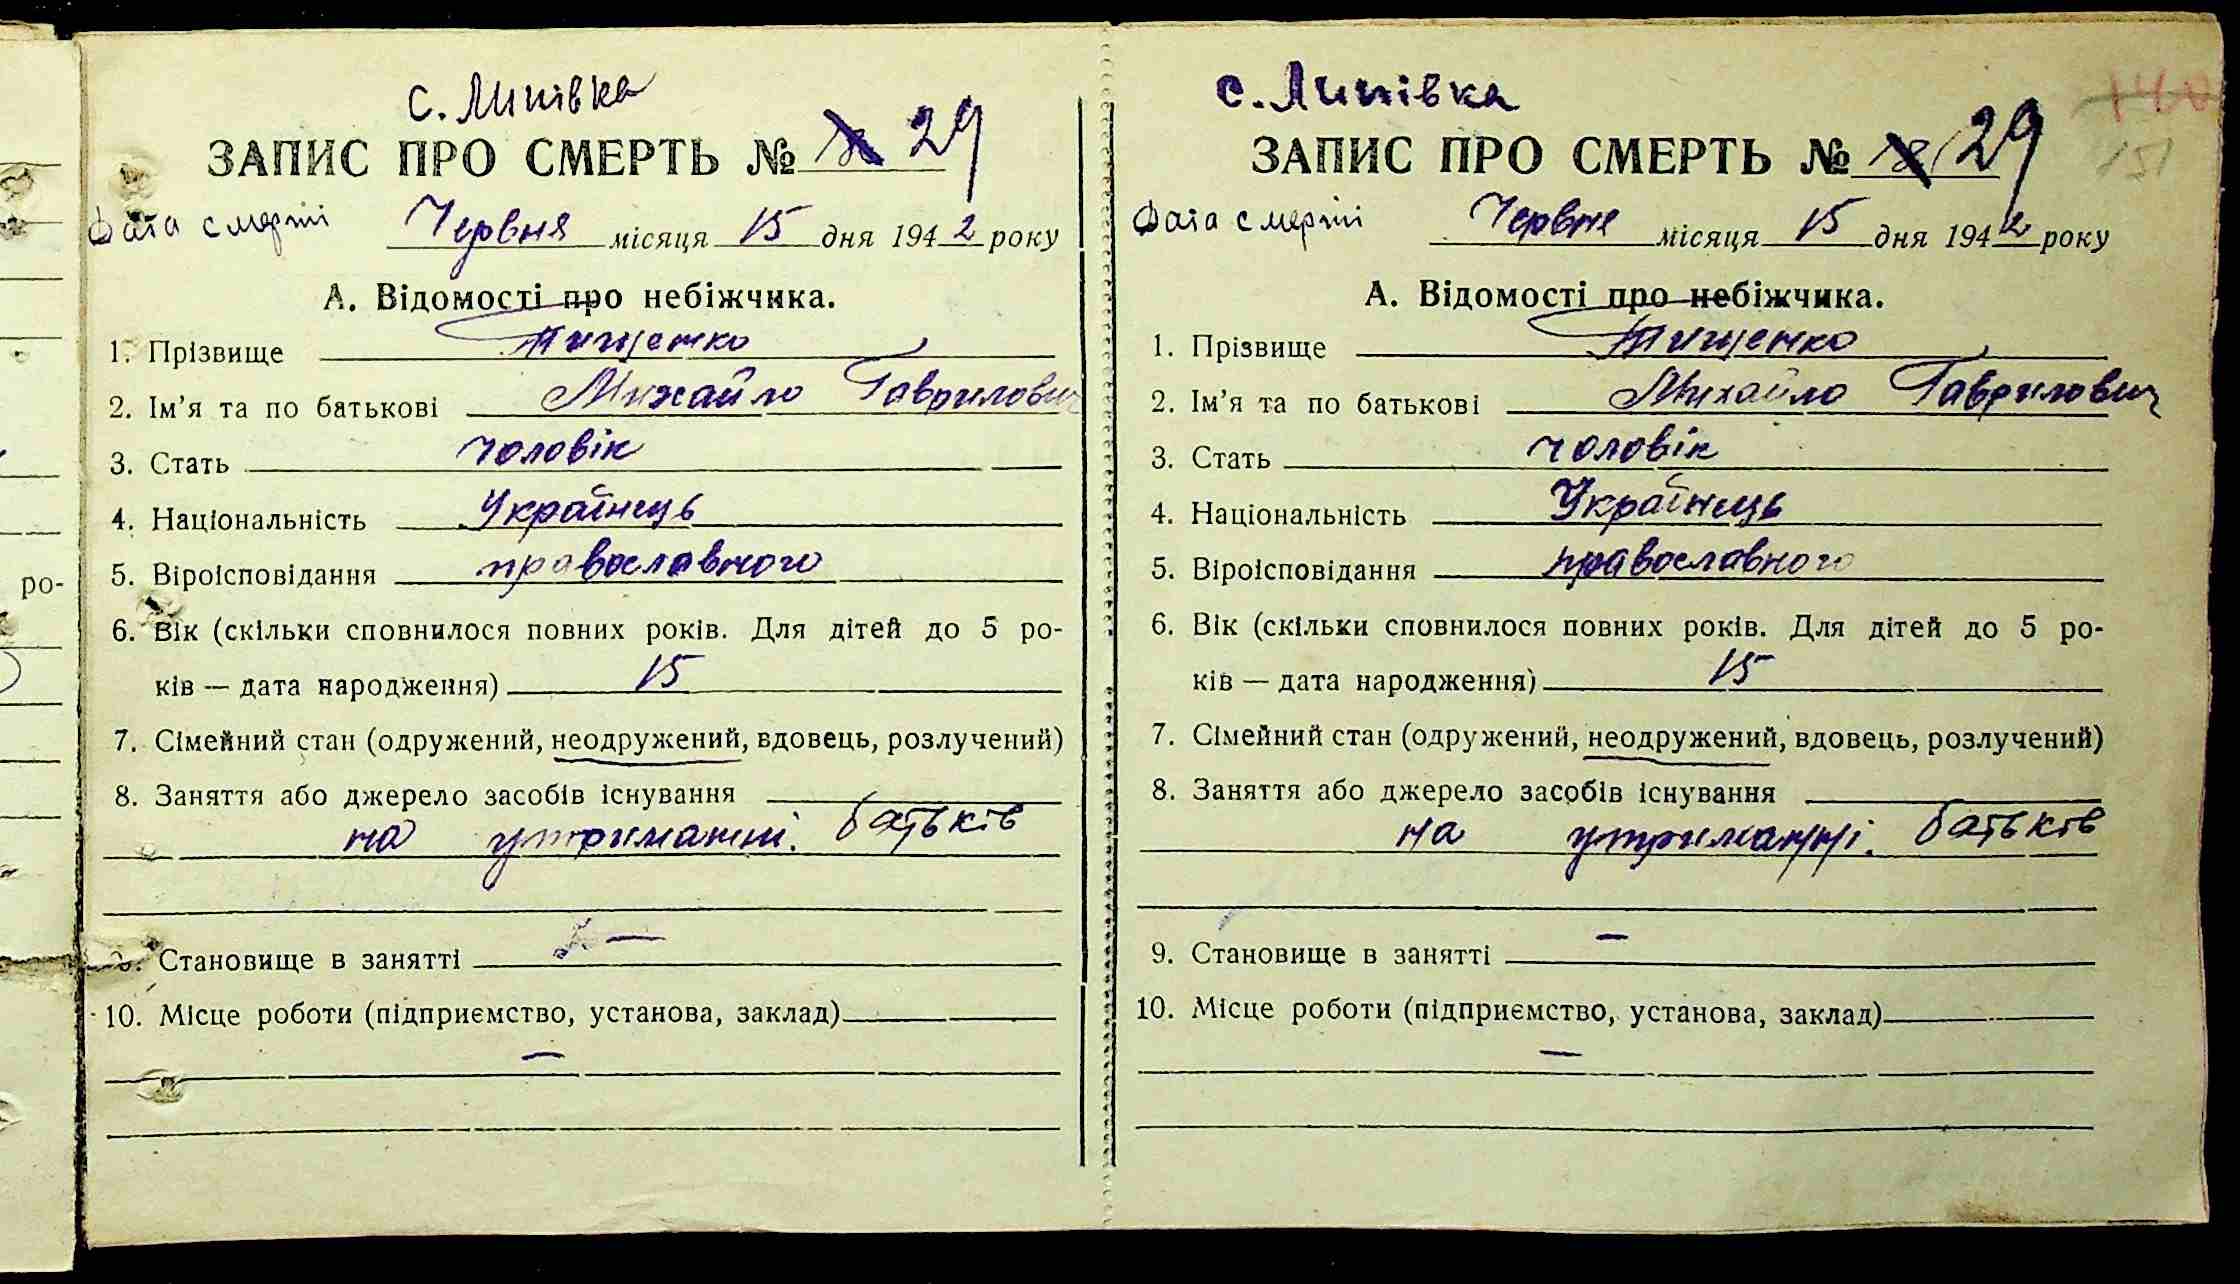 с. Липівка
ЗАПИС ПРО СМЕРТЬ № 29
Дата смерті Червня місяця 15 дня 1942 року
А. Відомості про небіжчика.
1. Прізвище Тищенко
2. Ім'я та по батькові Михайло Гаврилович
3. Стать чоловік
4. Національність Українець
5. Віроісповідання православного
6. Вік (скільки сповнилося повних років. Для дітей до 5 ро-
ків — дата народження) 15
7. Сімейний стан (одружений, неодружений, вдовець, розлучений)
8. Заняття або джерело засобів існування
на утриманні. батьків
9. Становище в занятті —
10. Місце роботи (підприємство, установа, заклад)
—
с. Липівка
ЗАПИС ПРО СМЕРТЬ № 29
140
151
Дата смерті Червня місяця 15 дня 1942 року
А. Відомості про небіжчика.
1. Прізвище Тищенко
2. Ім'я та по батькові Михайло Гаврилович
3. Стать чоловік
4. Національність Українець
5. Віроісповідання православного
6. Вік (скільки сповнилося повних років. Для дітей до 5 ро-
ків — дата народження) 15
7. Сімейний стан (одружений, неодружений, вдовець, розлучений)
8. Заняття або джерело засобів існування
на утриманні. батьків
9. Становище в занятті —
10. Місце роботи (підприємство, установа, заклад)
—
ро-